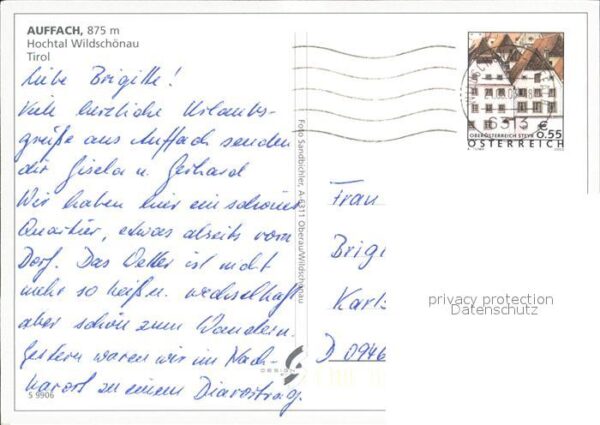 AUFFACH, 875 m
Hochtal Wildschönau
Tirol
Liebe Brigitte!
Viele herzliche Urlaubs-
grüße aus Auffach senden
dir Gisela u. Gerhard
Wir haben hier ein schönes
Quartier, etwas abseits vom
Dorf. Das Wetter ist nicht
mehr so heiß u. wechselhaft
aber schön zum Wandern.
Gestern waren wir im Nach-
barort zu einem Diavortrag.
S 9906
Foto Sandbichler, A-6311 Oberau/Wildschönau
DESIGN
6313
€ 0,55
OBERÖSTERREICH STEYR
ÖSTERREICH
Frau
Brigi
Karls
D 0946
privacy protection
Datenschutz